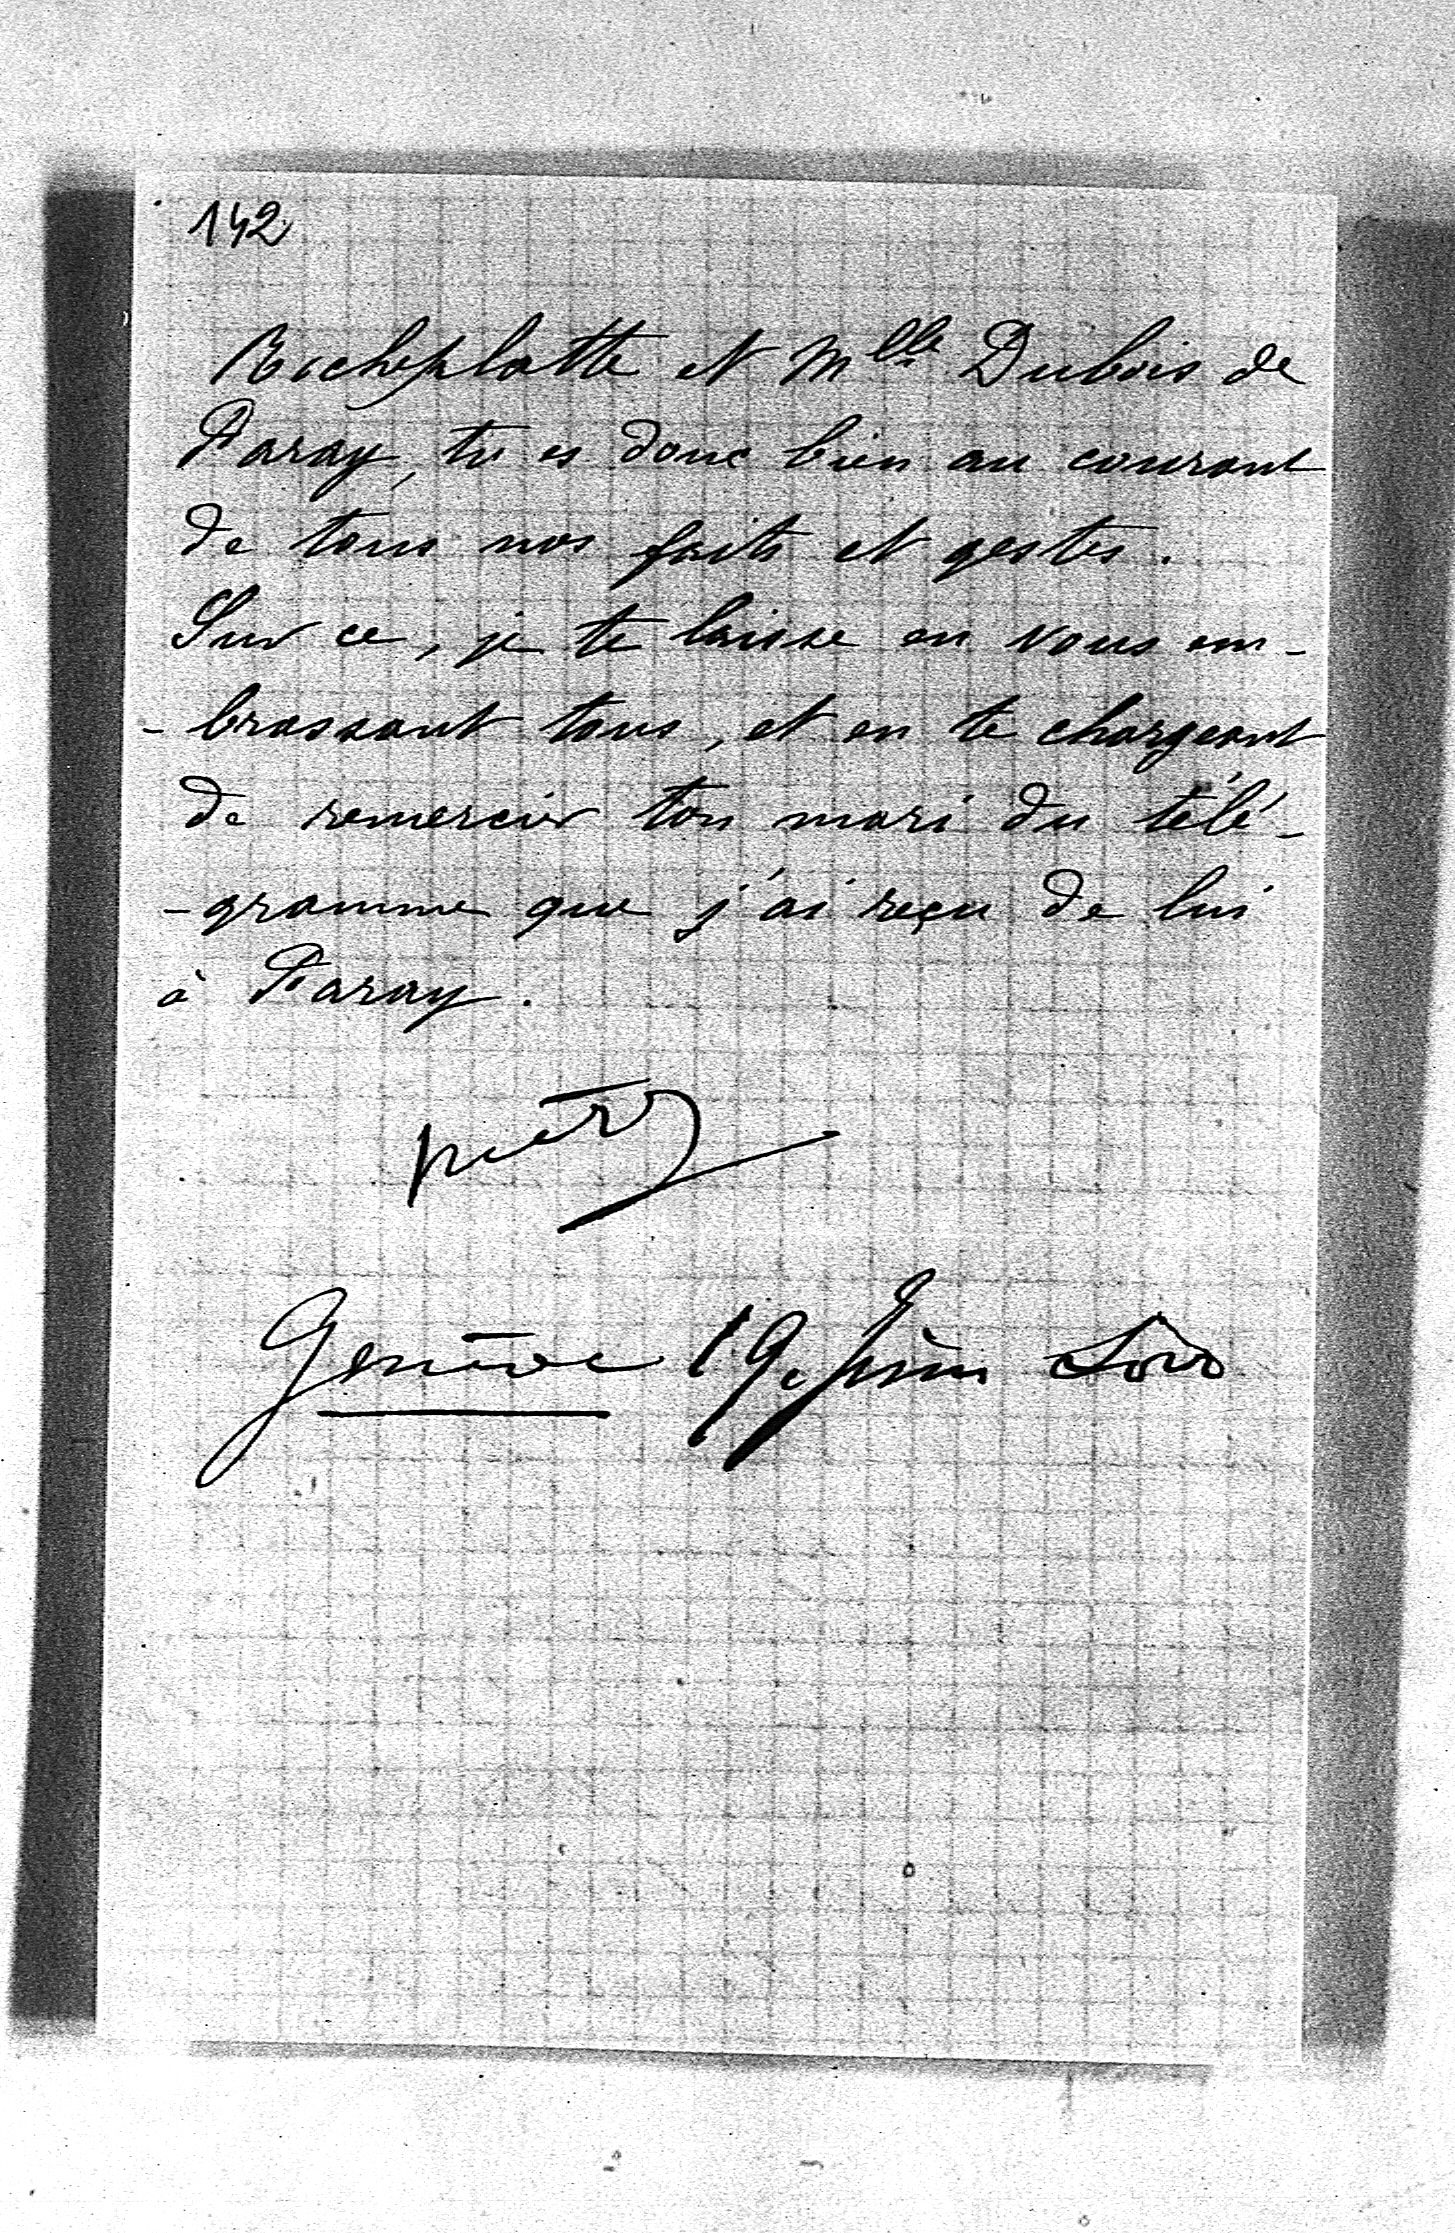 142
Richeplatte et Mlle Dubois de
Paray, tu es donc bien au courant
de tous nos faits et gestes.
Sur ce, je te laisse en vous em-
-brassant tous, et en te chargeant
de remercier ton mari du télé-
-gramme que j'ai reçu de lui
à Paray.
Genève 19 Juin